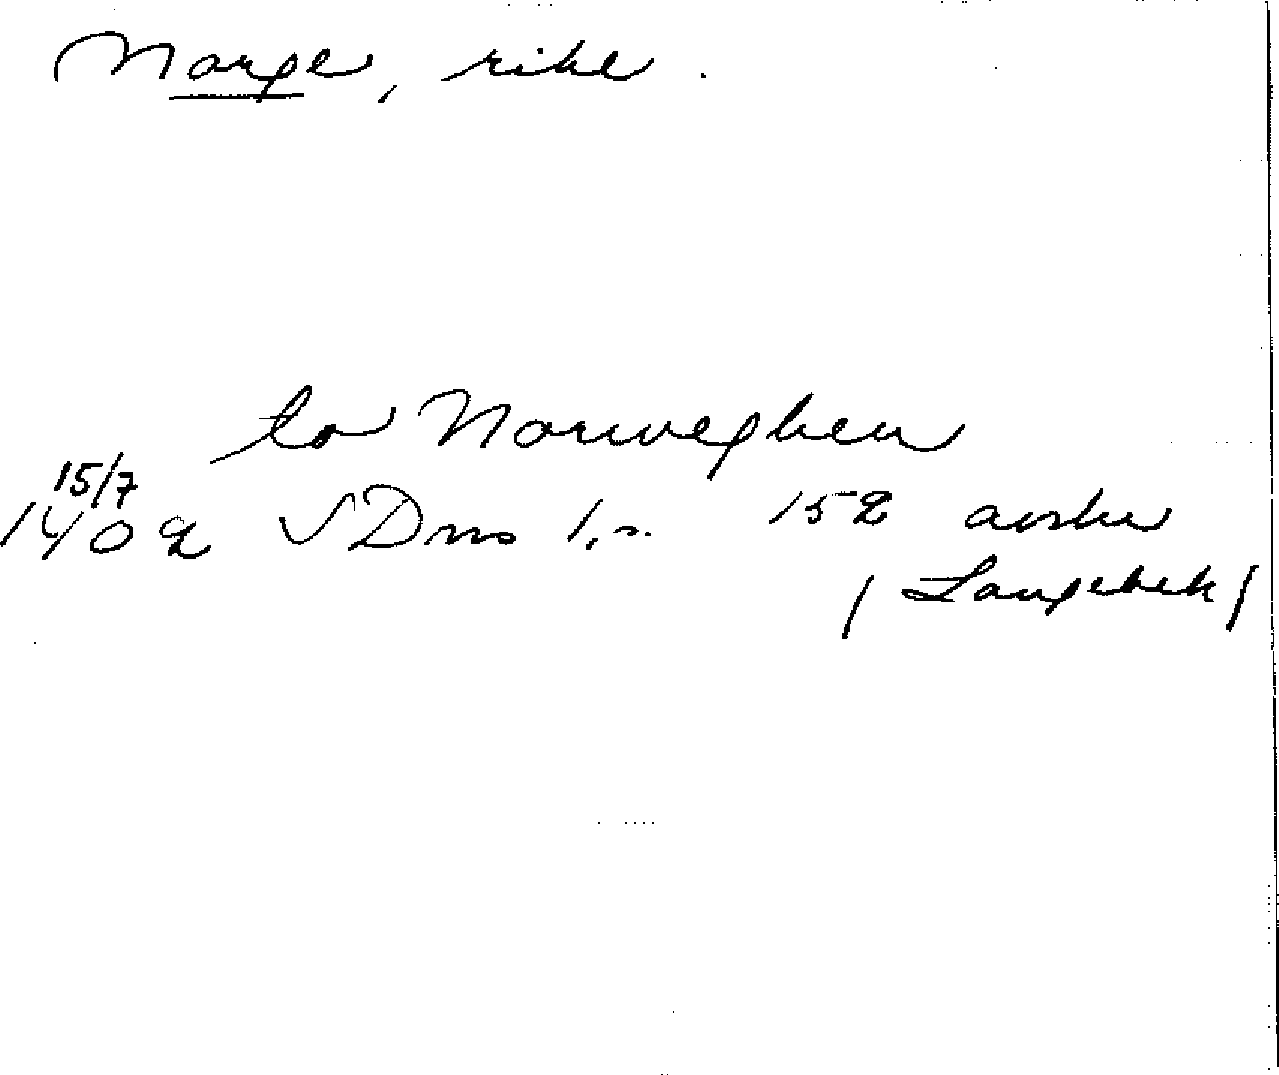 Norge, rike.
to Norweghen
15/7
1402 SDns 1, s. 152 avskr
(Langebek)